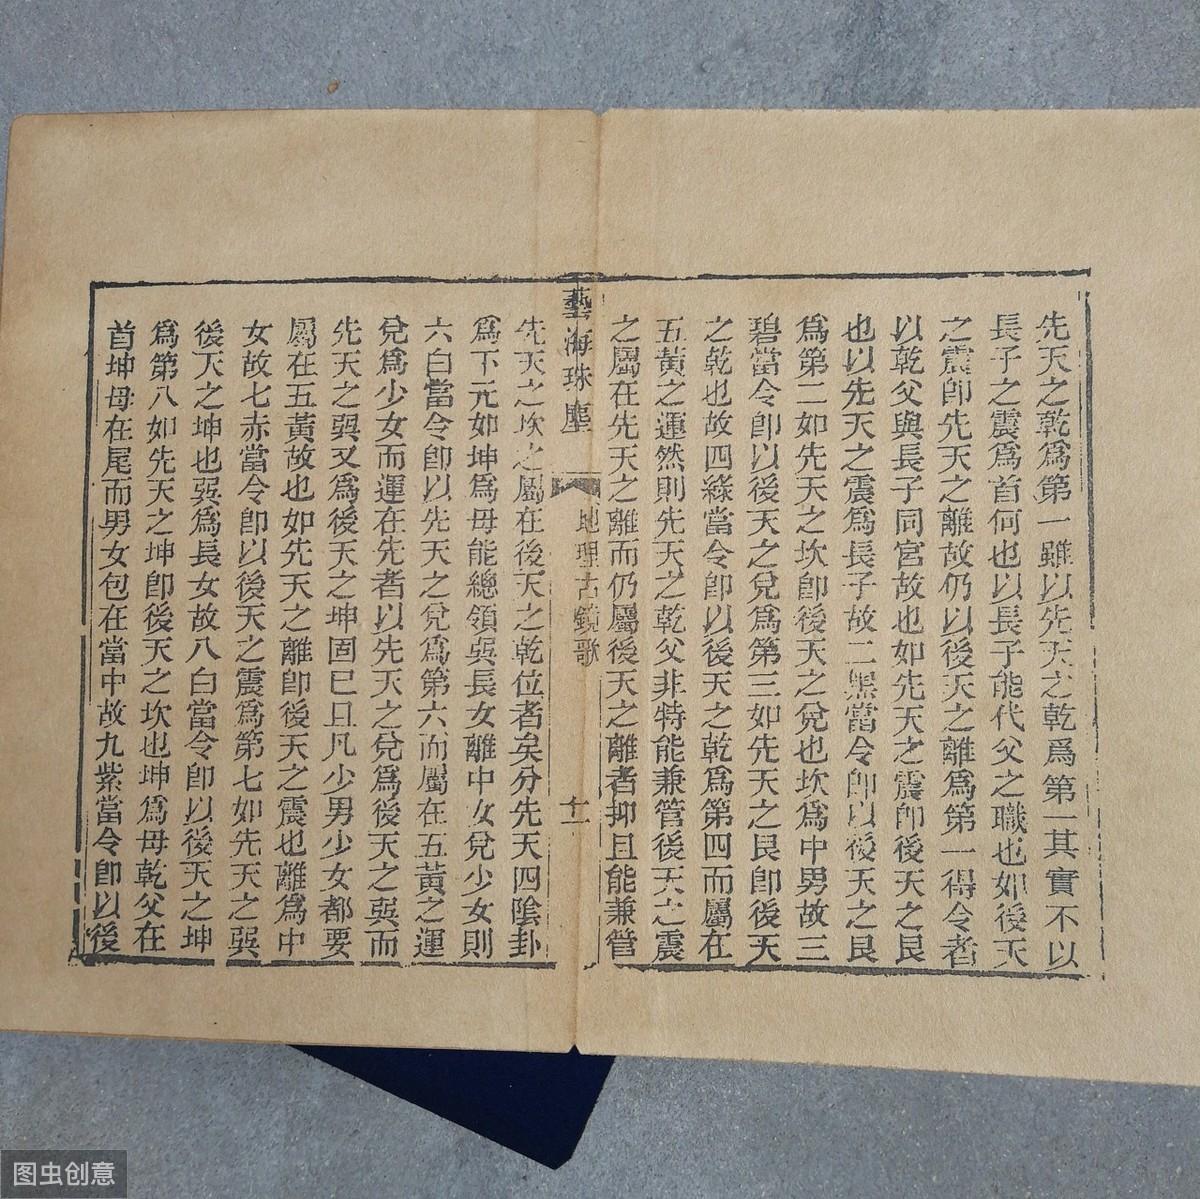 先天之乾爲第一雖以先天之乾爲第一其實不以
長子之震爲首何也以長子能代父之職也如後天
之震卽先天之離故仍以後天之離爲第一得令者
以乾父與長子同宮故也如先天之震卽後天之艮
也以先天之震爲長子故二黑當令卽以後天之艮
爲第二如先天之坎卽後天之兌也坎爲中男故三
碧當令卽以後天之兌爲第三如先天之艮卽後天
之乾也故四綠當令卽以後天之乾爲第四而屬在
五黃之運然則先天之乾父非特能兼管後天之震
之屬在先天之離而仍屬後天之離者抑且能兼管
藝海珠塵
地理古鏡歌
十二
先天之坎之屬在後天之乾位者矣分先天四陰卦
爲下元如坤爲母能總領巽長女離中女兌少女則
六白當令卽以先天之兌爲第六而屬在五黃之運
兌爲少女而運在先者以先天之兌爲後天之巽而
先天之巽又爲後天之坤固巳且凡少男少女都要
屬在五黃故也如先天之離卽後天之震也離爲中
女故七赤當令卽以後天之震爲第七如先天之巽
後天之坤也巽爲長女故八白當令卽以後天之坤
爲第八如先天之坤卽後天之坎也坤爲母乾父在
首坤母在尾而男女包在當中故九紫當令卽以後
图虫创意